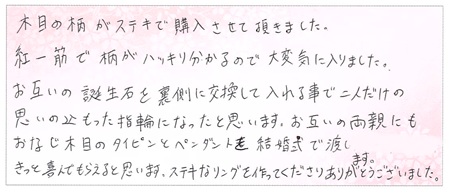 木目の柄がステキで購入させて頂きました。
紅一筋で柄がハッキリ分かるので大変気に入りました。
お互いの誕生石を裏側に交換して入れる事で二人だけの
思いの込もった指輪になったと思います。お互いの両親にも
おなじ木目のタイピンとペンダントを結婚式で渡します。
きっと喜んでもらえると思います。ステキなリングを作ってくださりありがとうございました。